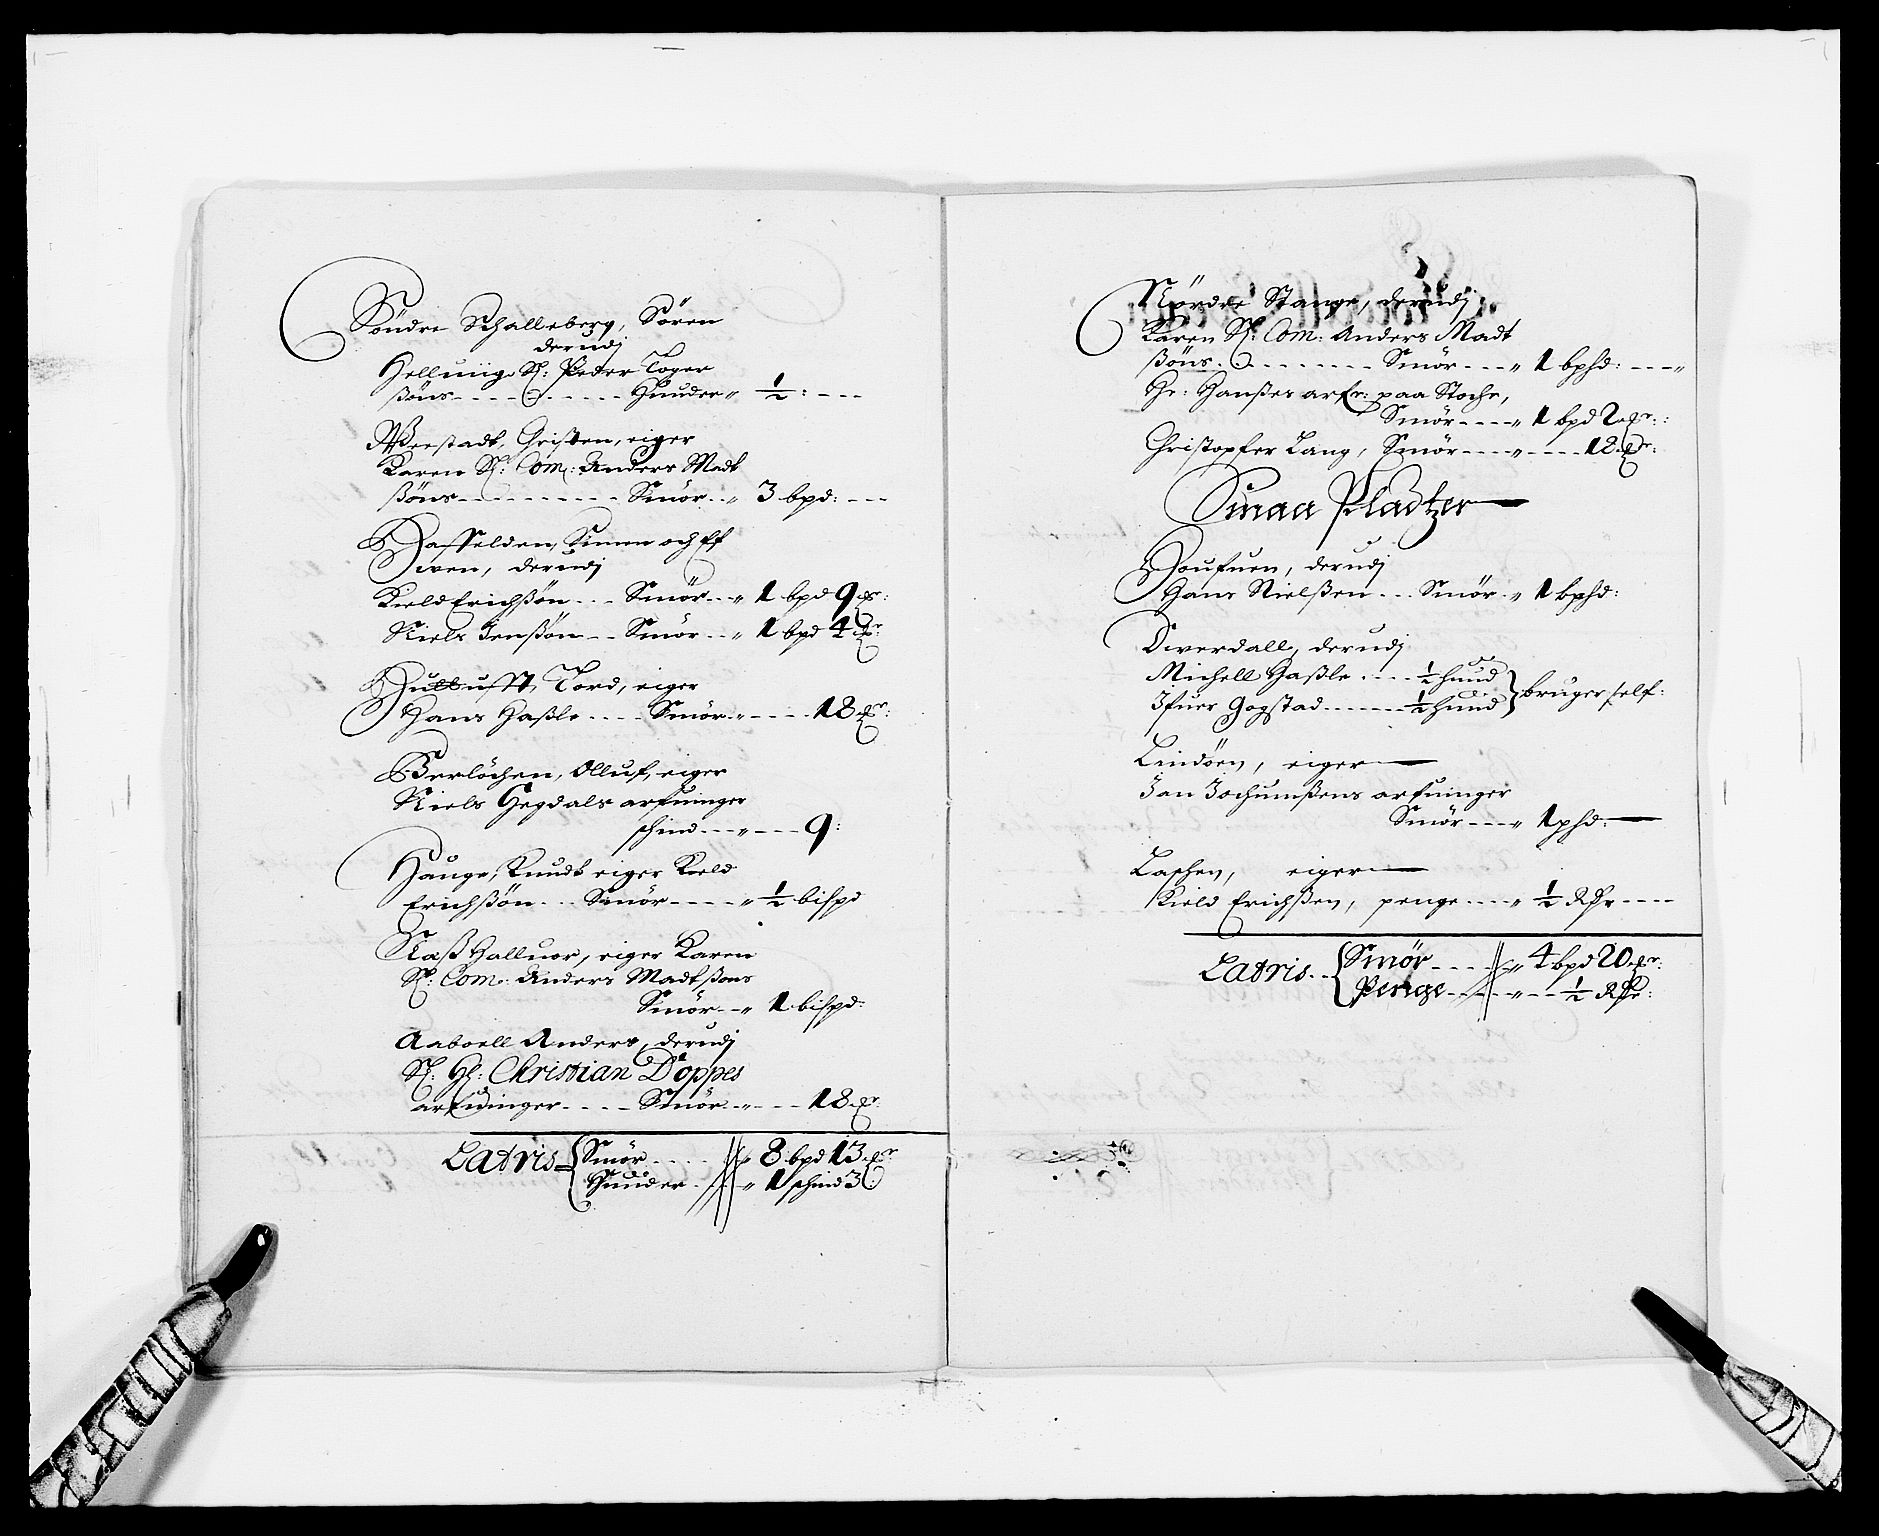 Söndre Schalleberg, Sören
derudj
Helluig Sl: Peder Toger
ßöns Huuder 1/2:
Werstadt, Christen, eiger
Karen Sl: Com: Anders Madt
ßöns Smör 3 bpd:
Hasselden, Simen och Ef
wen, derudj
Kield Erichßön Smör 1 bpd 9
Niels Jenßön Smör 1 bpd 4
Tord, eiger
Hans Haßle Smör 18
Berlöchen, Olluf, eiger
Niels Hegdals arfuinger
schind 9:
Hauge, Knudt eiger Kield
Erichßön Smör 1/2 bispd
Naß Halluor, eiger Karen
Sl: Com: Anders Madtßøns
Smör 1 bispd:
Aaboell Anders, derudj
Sl: Hl: Christian Döppes
arfuinger Smör 18
Latris Smör 8 bpd 13
Huuder 1 schind 3
Nördre Stange, derudj
Karen Sl: Com: Anders Madt
ßöns Smör 1 bphd:
Hr: Hanßes arfr: paa Stoche,
Smör 1 bpd 2
Christopfer Lang, Smör 12
Smaa Pladtzer
Houfuen, derudj
Hans Nielßen Smör 1 bphd:
Diverdall, derudj
Michell Haßle 1/2 huud
Ifuer Gogstad 1/2 huud bruger self:
Lindöen, eiger
Jan Jochumßens arfuinger
Smör 1 phd:
Laschen, eiger
Kield Erichßen, penge 1/2 Rdr
Latris Smör 4 bpd 20
Penge 1/2 Rdr: